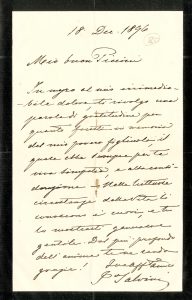 18 Dec. 1896
Mio buon Piccini
In mezzo al mio irrimedia-
bile dolore ti rivolgo una
parola di gratitudine per
quanto in memoria
del mio povero figliuolo, il
quale ebbe sempre per te
viva simpatia, e alla condi-
. Nelle luttuose
circostanze della vita si
conoscono i cuori e tu
lo mostrasti generoso e
gentile. Dal più profondo
dell'anima te ne rendo
grazie!
Salvini